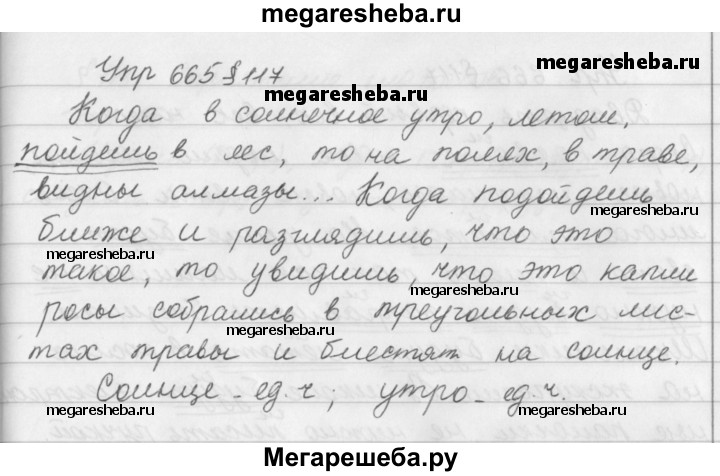 megaresheba.ru
Упр 665 § 117
megaresheba.ru
megaresheba.ru
Когда в солнечное утро, летом,
пойдешь в лес, то на полях, в траве,
видны алмазы... Когда подойдешь
megaresheba.ru
ближе и разглядишь, что это
megaresheba.ru
такое, то увидишь, что это капли
megaresheba.ru
росы собрались в треугольных лис-
megaresheba.ru
тах травы и блестят на солнце.
Солнце - ед. ч.; утро - ед. ч.
megaresheba.ru
megaresheba.ru
Мегарешеба.ру